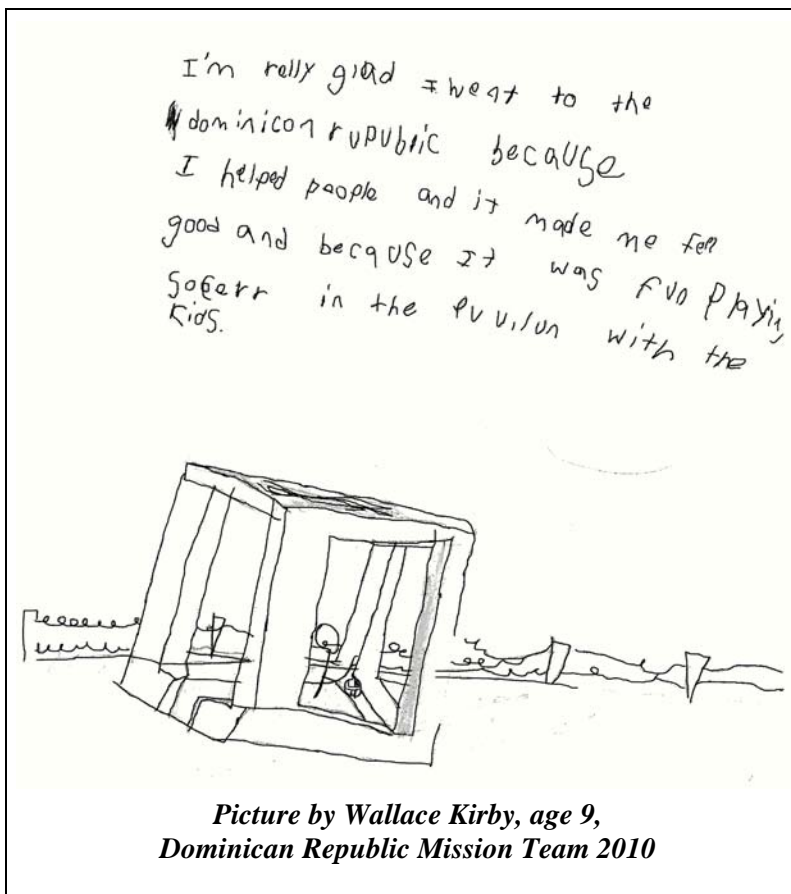 I'm relly glad I went to the
dominicon rupublic because
I helped people and it made me fell
good and because It was fun playing
soccerr in the puvilun with the
kids.
Picture by Wallace Kirby, age 9,
Dominican Republic Mission Team 2010